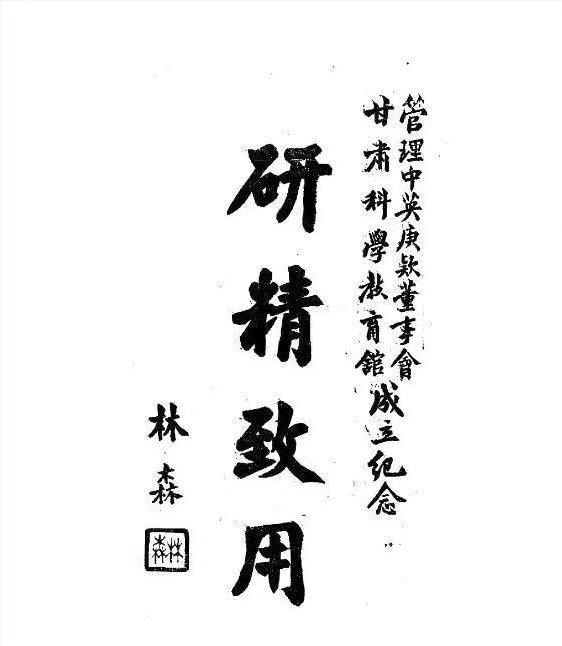 管理中英庚款董事會
甘肅科學教育館
成立紀念
研精致用
林森
林森